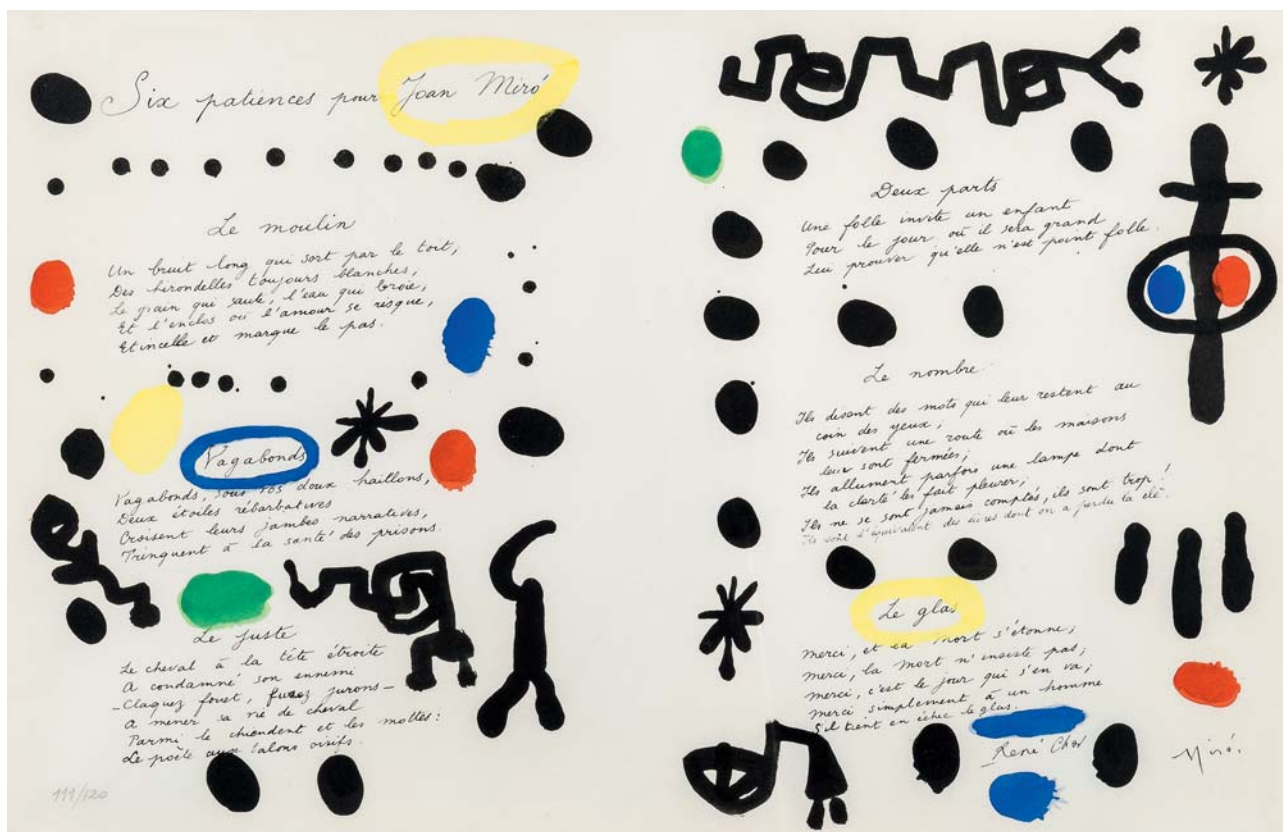 Six patiences pour Joan Miró
Le moulin
Un bruit long qui sort par le toit,
Des hirondelles toujours blanches,
Le grain qui saute, l'eau qui broie,
Et l'enclos où l'amour se risque,
Etincelle et marque le pas.
Vagabonds
Vagabonds, sous vos doux haillons,
Deux étoiles rébarbatives
Croisent leurs jambes narratives,
Trinquent à la santé des prisons.
Le juste
Le cheval à la tête étroite
A condamné son ennemi
-Claquez fouet, fusez jurons-
A mener sa vie de cheval
Parmi le chiendent et les mottes:
Le poète aux talons oisifs.
111/120
Deux parts
Une folle invite un enfant
Pour le jour où il sera grand
Lui prouver qu'elle n'est point folle.
Le nombre
Ils disent des mots qui leur restent au
coin des yeux;
Ils suivent une route où les maisons
leur sont fermées;
Ils allument parfois une lampe dont
la clarté les fait pleurer;
Ils ne se sont jamais comptés, ils sont trop!
Ils sont l'équivalent des livres dont on a perdu la clé.
Le glas
Merci, et la mort s'étonne;
Merci, la mort n'insiste pas;
Merci, c'est le jour qui s'en va;
Merci simplement à un homme
S'il tient en échec le glas.
René Char
Miró.